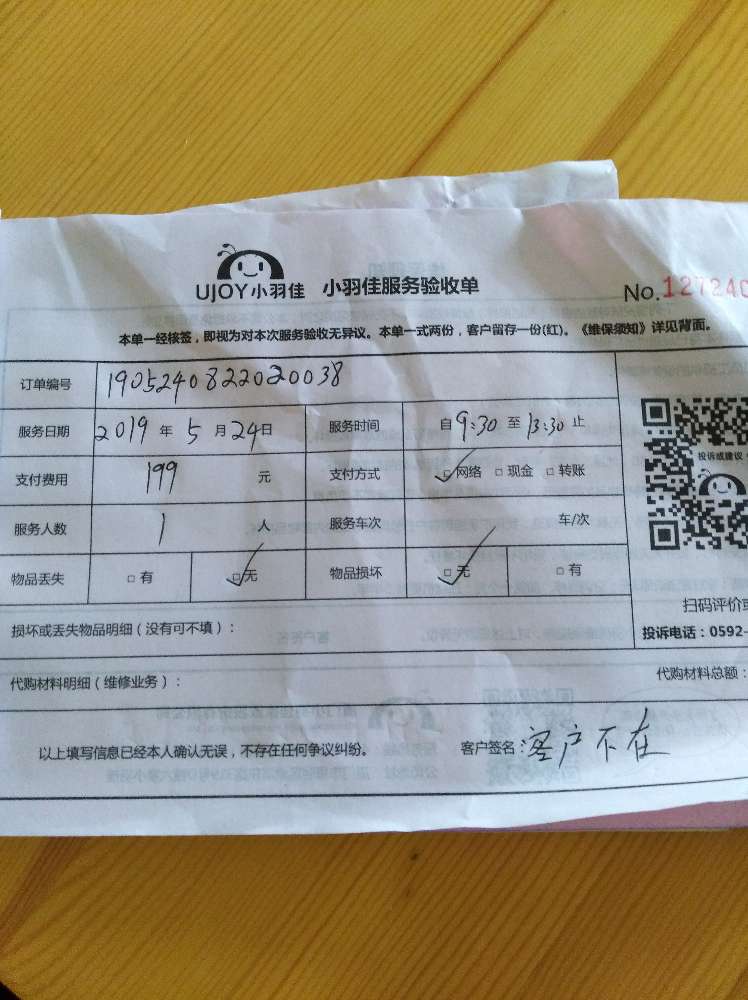 UJOY小羽佳 小羽佳服务验收单
No.127240
本单一经核签，即视为对本次服务验收无异议。本单一式两份，客户留存一份(红)。《维保须知》详见背面。
订单编号 1905240822020038
服务日期 2019 年 5 月 24日 服务时间 自 9:30 至 13:30 止
支付费用 199 元 支付方式 ☑网络 □现金 □转账
投诉或建议
服务人数 1 人 服务车次 车/次
物品丢失 □有 ☑无 物品损坏 ☑无 □有
扫码评价或
损坏或丢失物品明细（没有可不填）： 投诉电话：0592-
代购材料明细（维修业务）： 代购材料总额：
以上填写信息已经本人确认无误，不存在任何争议纠纷。 客户签名：客户不在